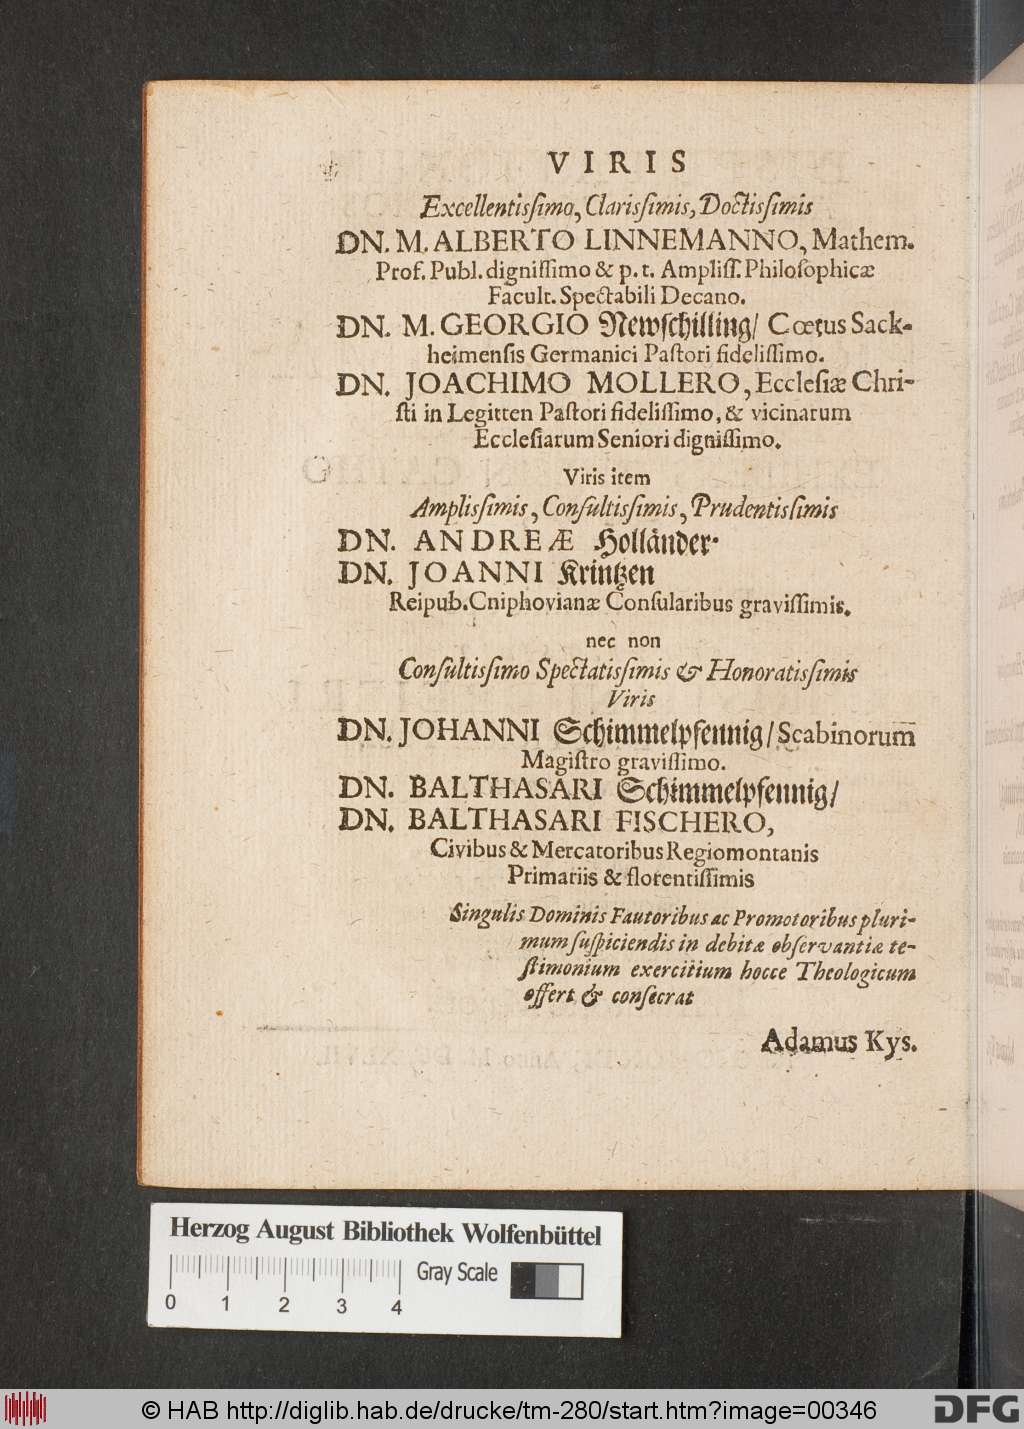 VIRIS
Excellentissimo, Clarissimis, Doctissimis
DN. M. ALBERTO LINNEMANNO, Mathem.
Prof. Publ. dignissimo & p. t. Ampliss. Philosophicæ
Facult. Spectabili Decano.
DN. M. GEORGIO Newschilling/ Cœtus Sack-
heimensis Germanici Pastori fidelissimo.
DN. JOACHIMO MOLLERO, Ecclesiæ Chri-
sti in Legitten Pastori fidelissimo, & vicinarum
Ecclesiarum Seniori dignissimo.
Viris item
Amplissimis, Consultissimis, Prudentissimis
DN. ANDREÆ Holländer.
DN. JOANNI Krintzen
Reipub. Cniphovianæ Consularibus gravissimis.
nec non
Consultissimo Spectatissimis & Honoratissimis
Viris
DN. JOHANNI Schimmelpfennig/ Scabinorum
Magistro gravissimo.
DN. BALTHASARI Schimmelpfennig/
DN. BALTHASARI FISCHERO,
Civibus & Mercatoribus Regiomontanis
Primariis & florentissimis
Singulis Dominis Fautoribus ac Promotoribus pluri-
mum suspiciendis in debitæ observantiæ te-
stimonium exercitium hocce Theologicum
offert & consecrat
Adamus Kys.
Herzog August Bibliothek Wolfenbüttel
Gray Scale
0 1 2 3 4
© HAB http://diglib.hab.de/drucke/tm-280/start.htm?image=00346
DFG